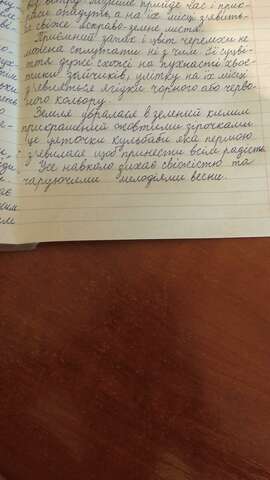 прийде час і прик-
раси опадуть, а на їх місці з'явить-
ся свіже яскраво-зелене листя.
Приємний запах і цвіт черемхи не
можна сплутати ні з чим. Її суцвіт-
тя дуже схожі на пухнасті хвос-
тики зайчиків, улітку на їх місці
з'являються ягідки чорного або черво-
ного кольору.
Земля вбралася в зелений килим
прикрашений жовтими зірочками.
Це квіточки кульбаби яка першою
з'явилася щоб принести всім радість.
Усе навколо дихає свіжістю та
чаруючими мелодіями весни.